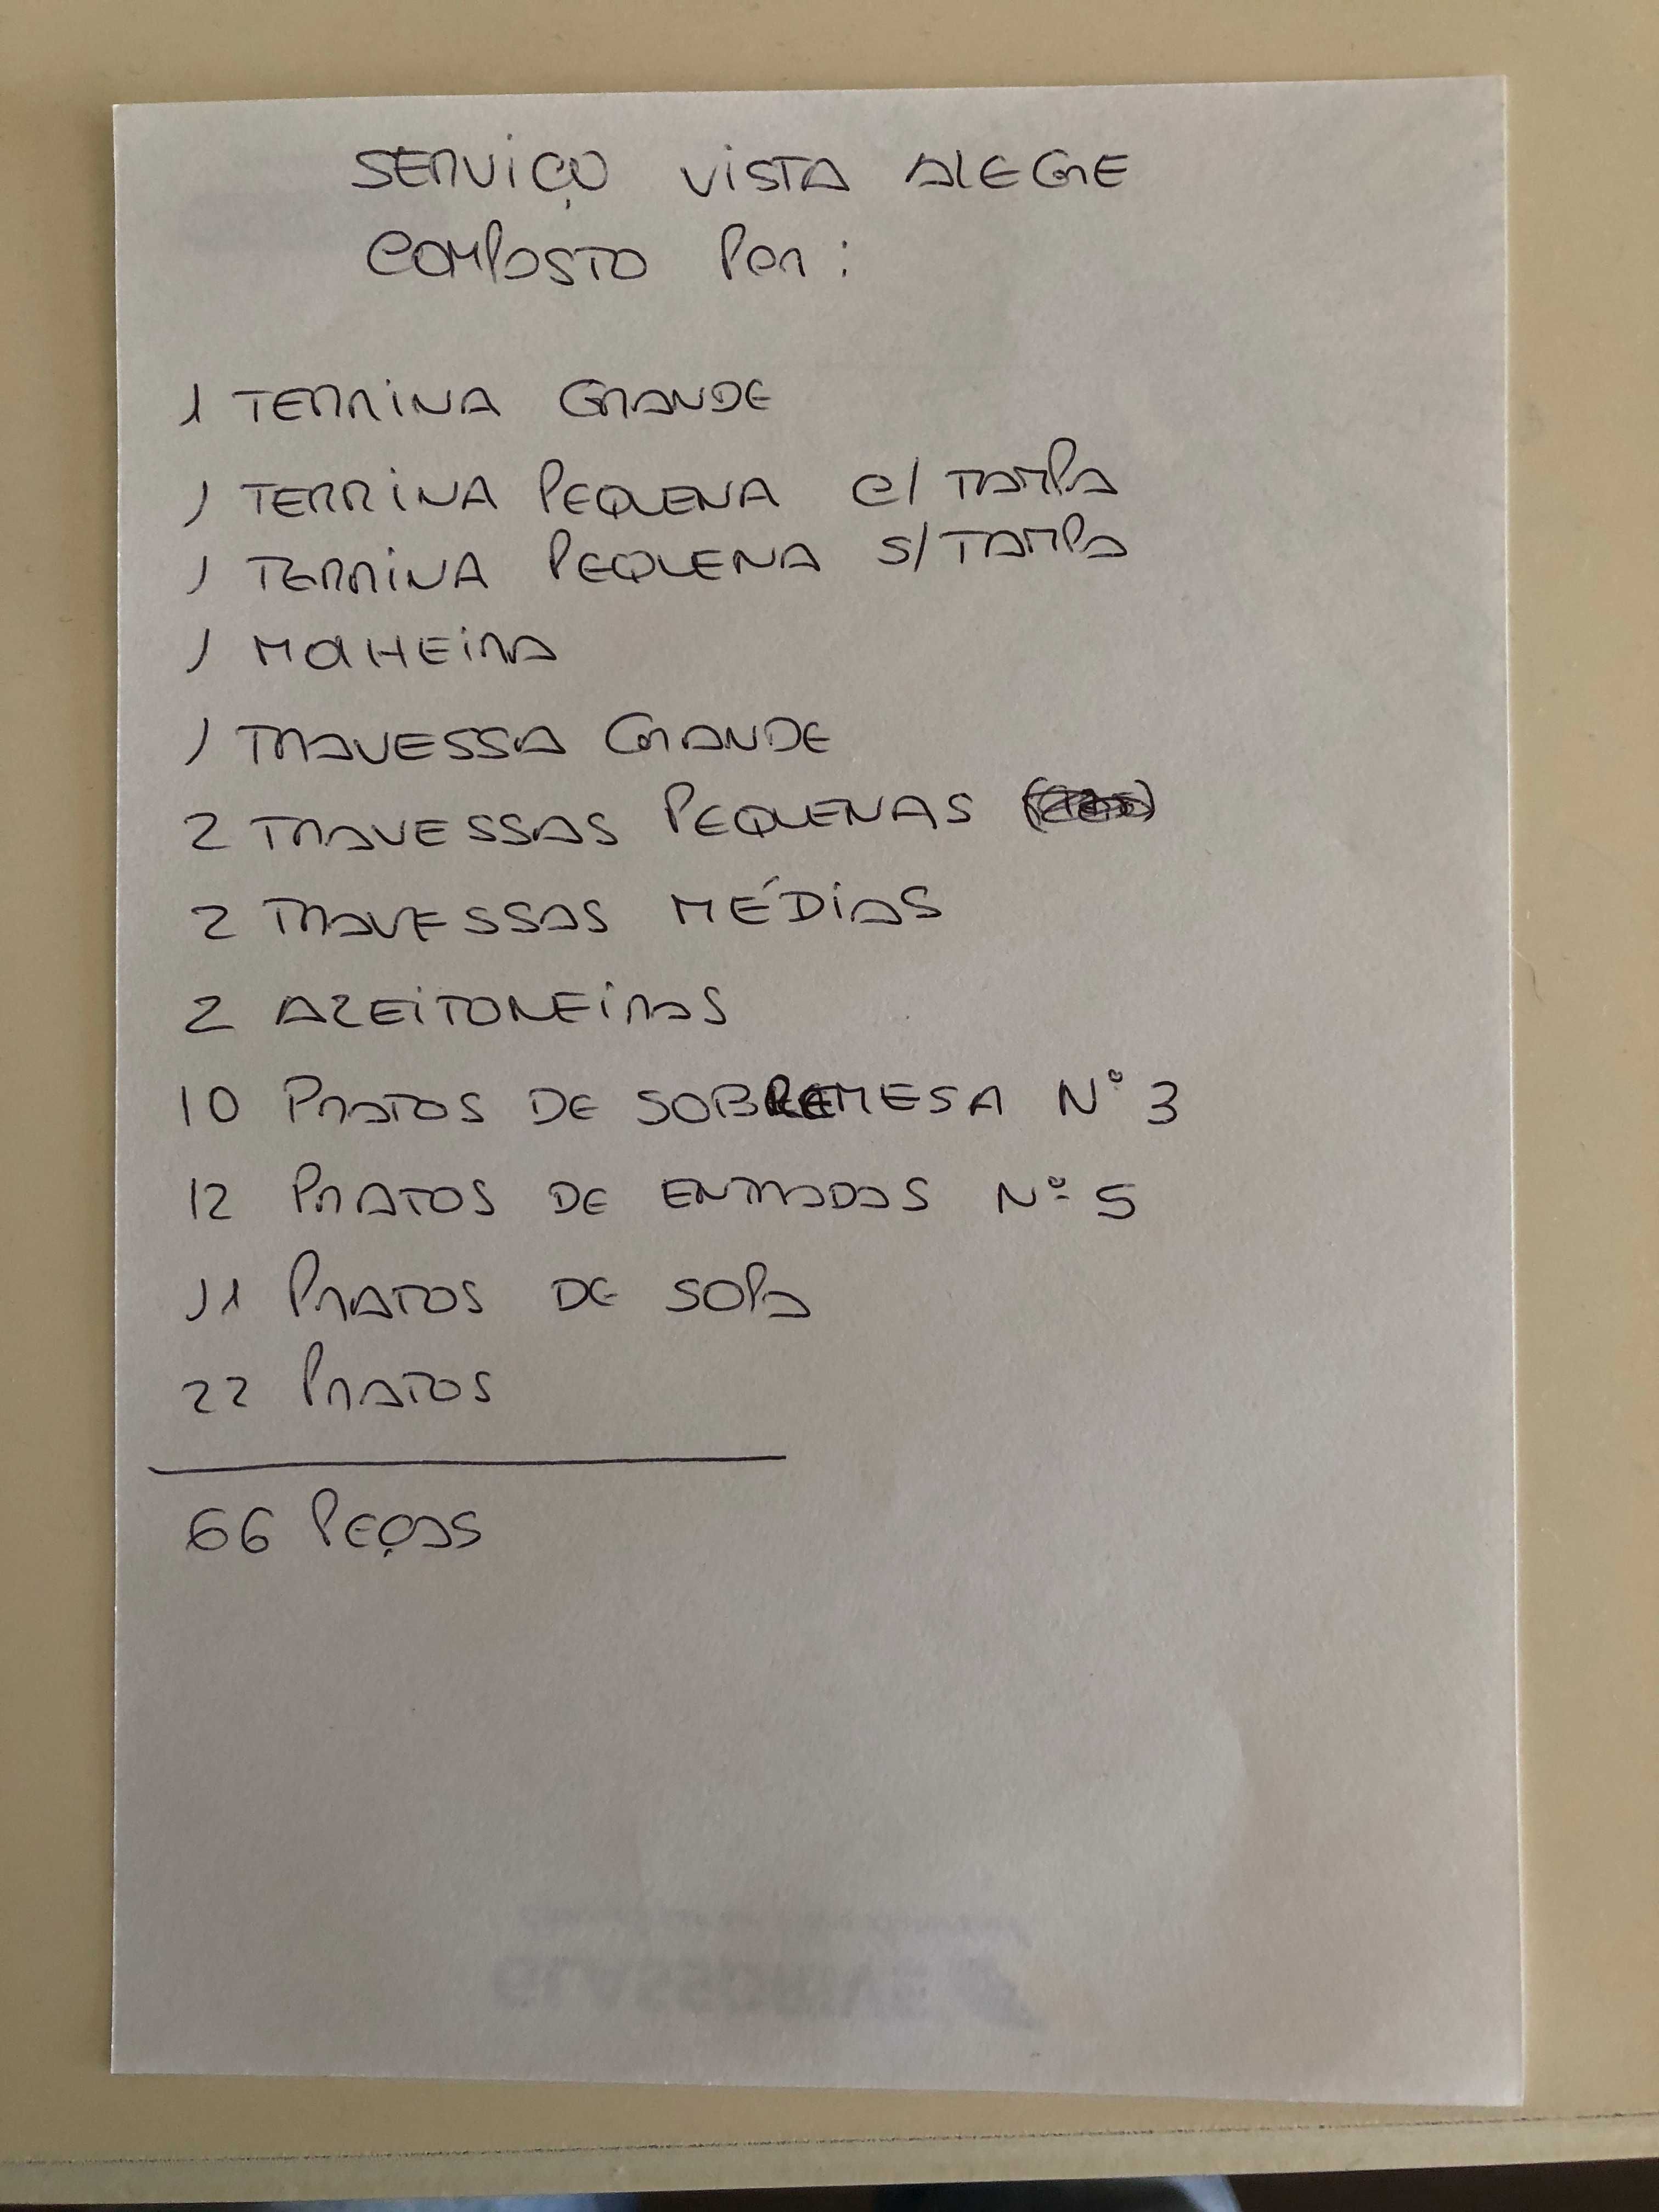 SERVIÇO VISTA ALEGRE
COMPOSTO POR:
1 TERRINA GRANDE
1 TERRINA PEQUENA C/ TAMPA
1 TERRINA PEQUENA S/ TAMPA
1 MOLHEIRA
1 TRAVESSA GRANDE
2 TRAVESSAS PEQUENAS
2 TRAVESSAS MÉDIAS
2 AZEITONEIRAS
10 PRATOS DE SOBREMESA Nº 3
12 PRATOS DE ENTRADAS Nº 5
11 PRATOS DE SOPA
22 PRATOS
66 PEÇAS
GLASSDRIVE